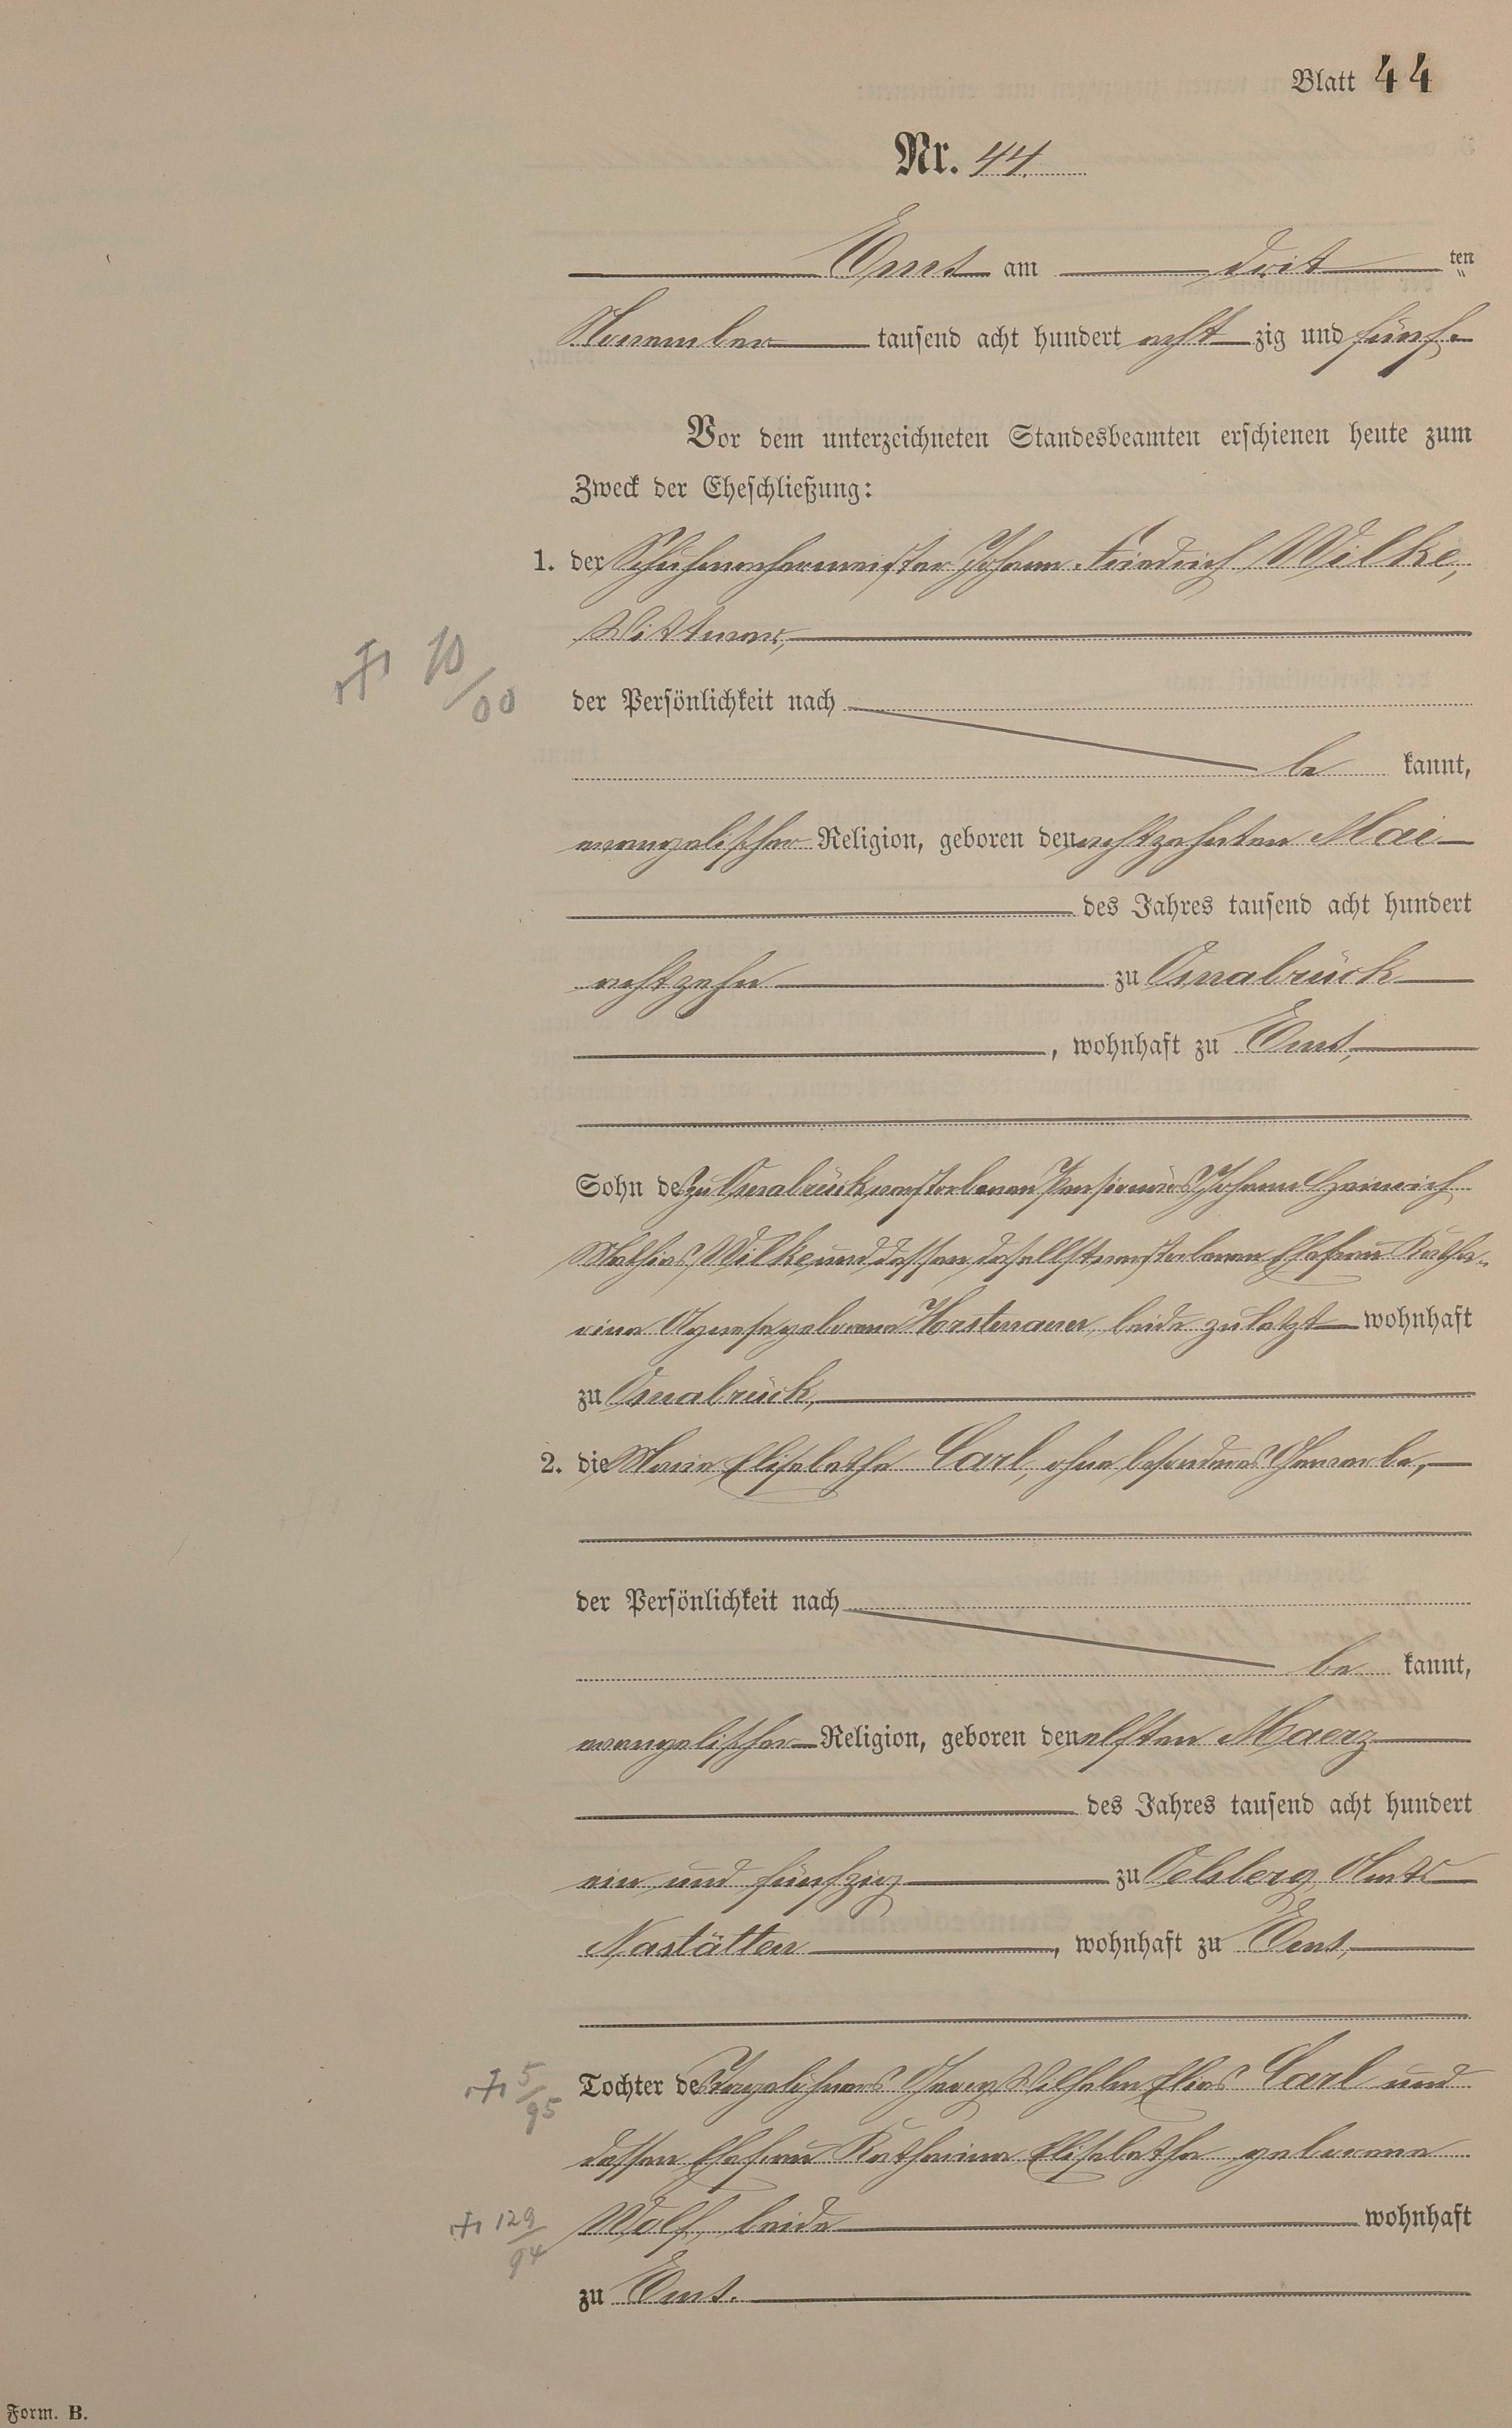 Blatt 44
Nr. 44.
Ems am drit ten
November tausend acht hundert acht zig und fünf.
Vor dem unterzeichneten Standesbeamten erschienen heute zum
Zweck der Eheschließung:
1. der Schuhmachermeister Johann Friedrich Wilke,
Wittwer,
der Persönlichkeit nach
be kannt,
evangelischer Religion, geboren den achtzehnten Mai
des Jahres tausend acht hundert
achtzehn zu Osnabrück
, wohnhaft zu Ems,
Sohn des zu Osnabrück verstorbenen Pensionärs Johann Heinrich
Mathias Wilke und dessen daselbst verstorbenen Ehefrau Katha-
rina Agnesa geborene Horstenauer, beide zuletzt wohnhaft
zu Osnabrück,
2. die Marie Elisabetha Carl, ohne besonderes Gewerbe,
der Persönlichkeit nach
be kannt,
evangelischer Religion, geboren den elften Maerz
des Jahres tausend acht hundert
ein und fünfzig zu Oelsberg Amts
Nastätten, wohnhaft zu Ems,
Tochter des Tagelöhners Georg Wilhelm Elias Carl und
dessen Ehefrau Katharina Elisabetha geborene
Wolf, beide wohnhaft
zu Ems.
10/00
5/95
129/94
Form. B.